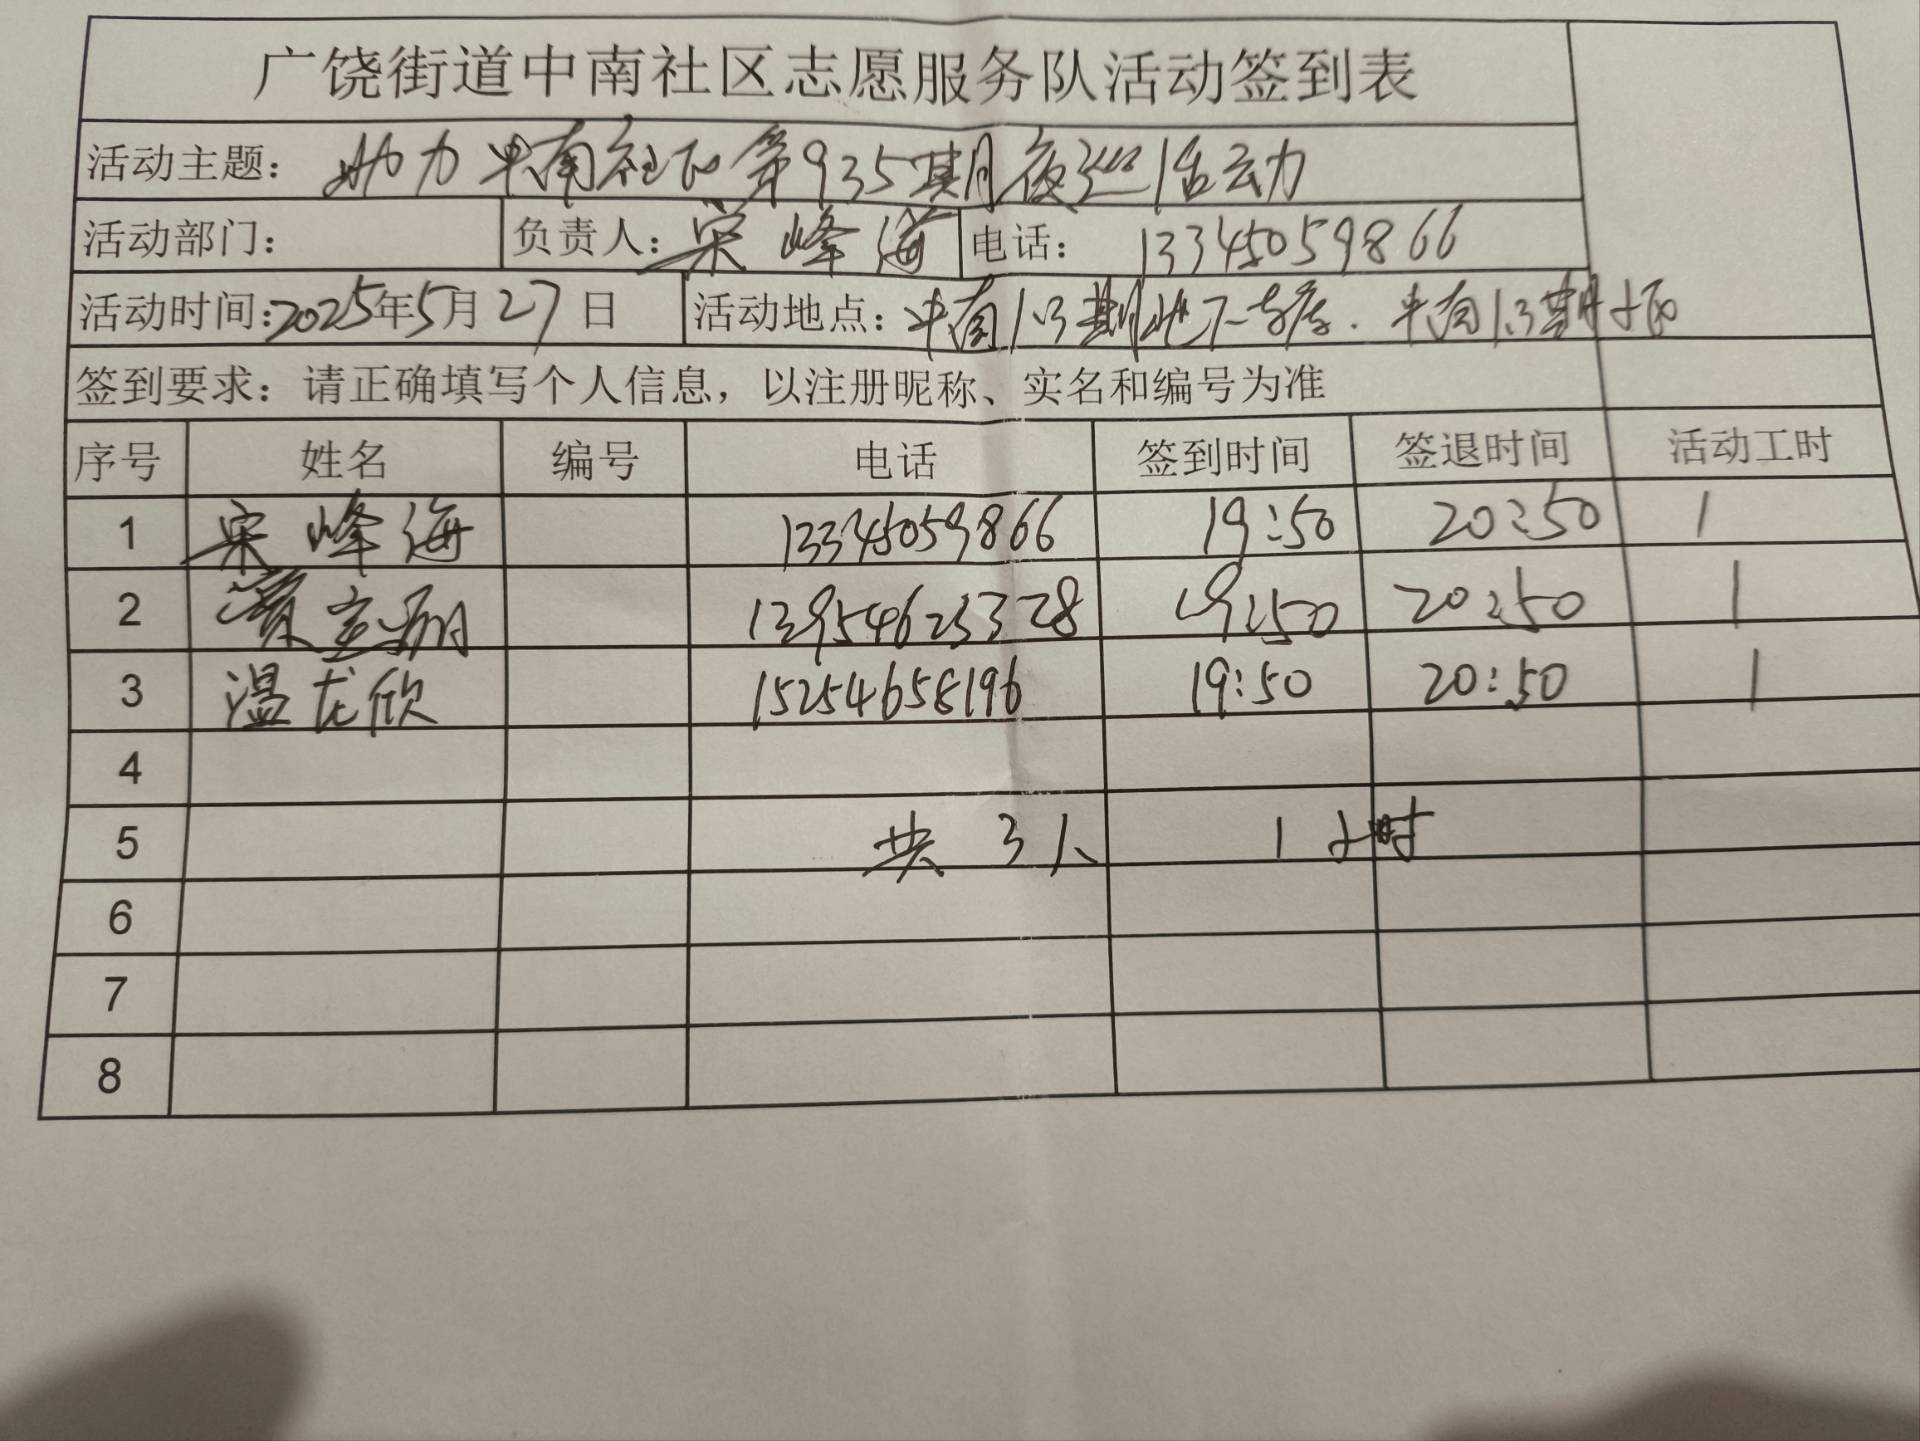 广饶街道中南社区志愿服务队活动签到表
活动主题： 助力中南社区第935期夜巡活动
活动部门： 负责人：宋峰海 电话： 13345059866
活动时间：2025年5月27日 活动地点：中南1.3期地下车库．中南1.3期小区
签到要求：请正确填写个人信息，以注册昵称、实名和编号为准
序号 姓名 编号 电话 签到时间 签退时间 活动工时
1 宋峰海 13345059866 19:50 20:50 1
2 19:50 20:50 1
3 温龙欣 15254658196 19:50 20:50 1
4
5 共3人 1小时
6
7
8